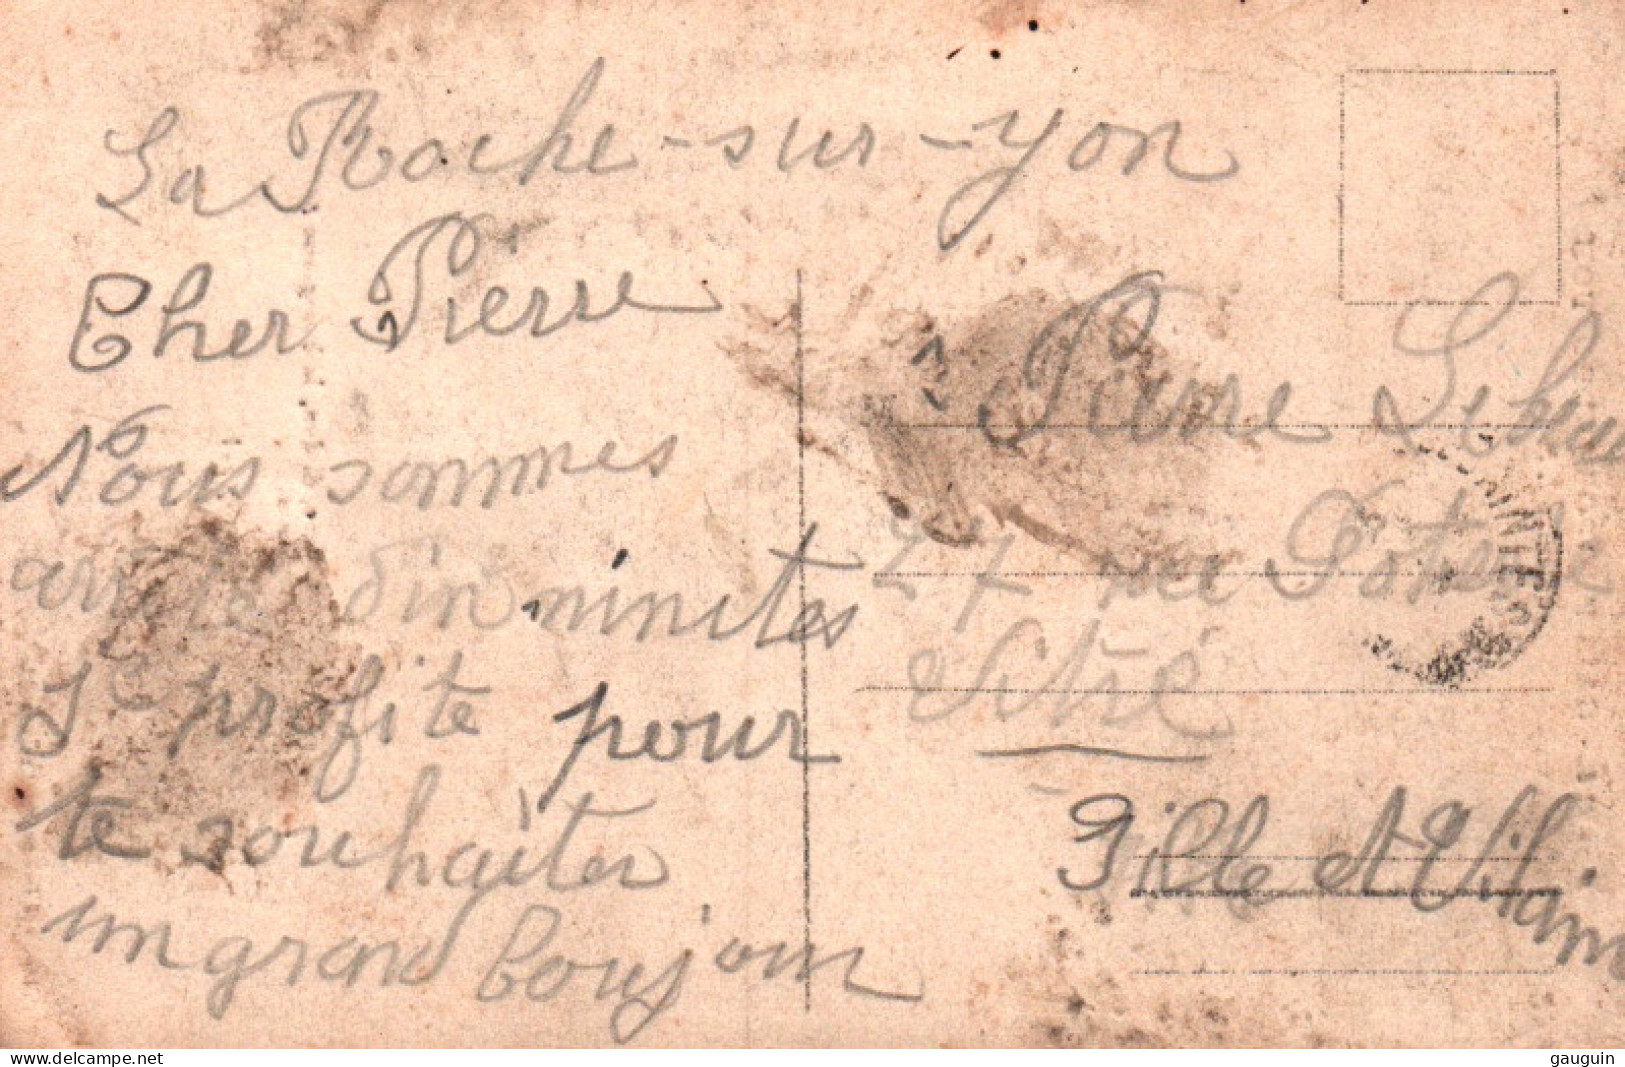 La Roche-sur-yon
Cher Pierre
Nous sommes
arrêté din minites
Je profite pour
te souhaiter
un grand boujour
Pierre
27 rue Poterie
Vitré
Ille et Vilain
AINTES
delcampe.net
gauguin